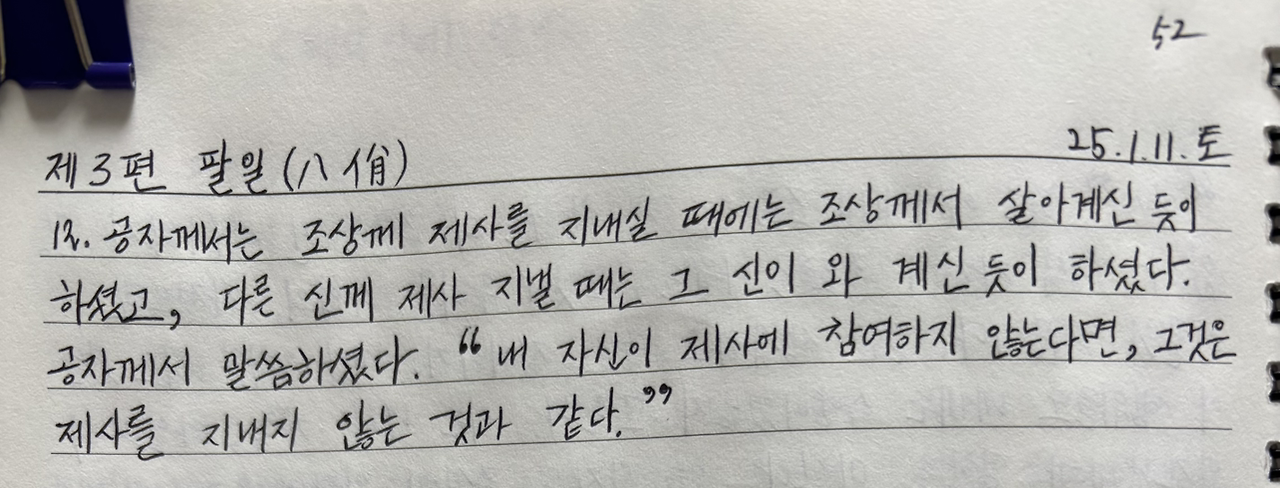 52
제3편 팔일(八佾) 25.1.11.토
12. 공자께서는 조상께 제사를 지내실 때에는 조상께서 살아계신 듯이
하셨고, 다른 신께 제사 지낼 때는 그 신이 와 계신 듯이 하셨다.
공자께서 말씀하셨다. "내 자신이 제사에 참여하지 않는다면, 그것은
제사를 지내지 않는 것과 같다."